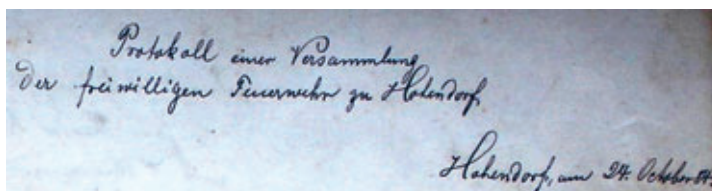 Protokoll einer Versammlung
der freiwilligen Feuerwehr zu Hohendorf
Hohendorf, am 24. October 84.